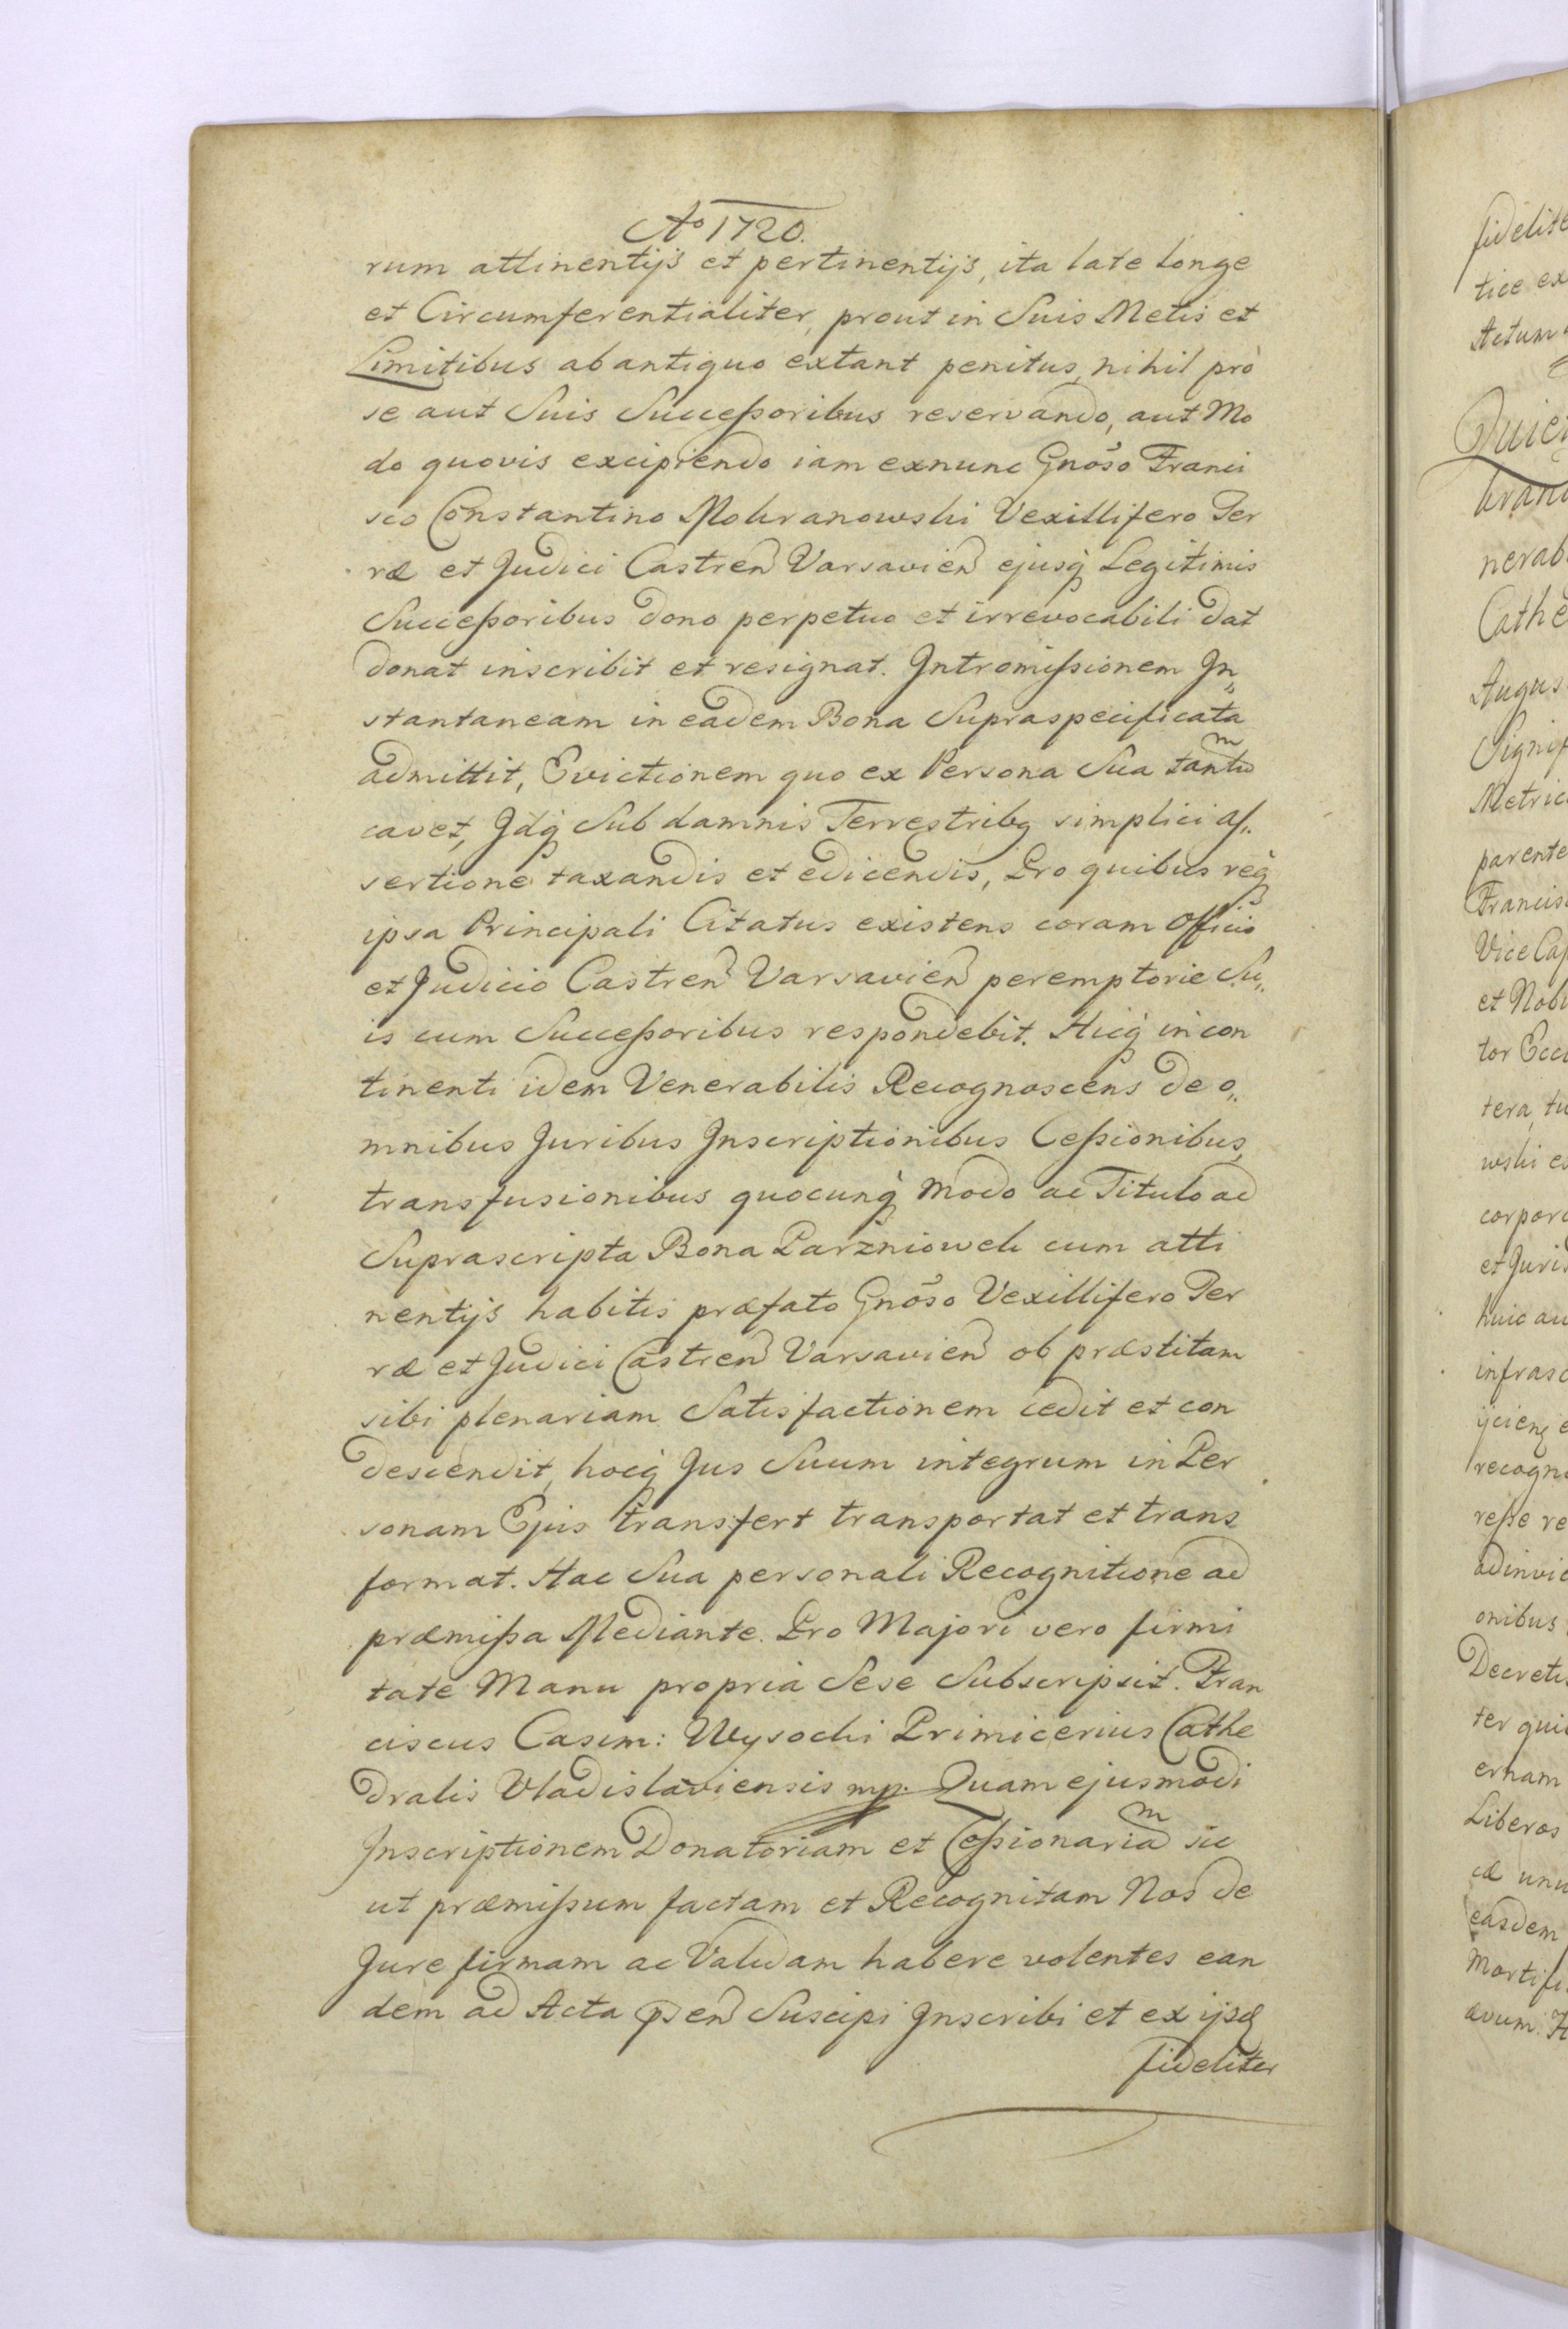 Ao 1720.
rum attinentijs et pertinentijs, ita late longe
et Circumferentialiter, prout in Suis Metis et
Limitibus ab antiquo extant penitus, nihil pro
se aut Suis Succeßoribus reservando, aut Mo
do quovis excipiendo iam exnunc Gnõso Franci
sco Constantino Mokranowski Vexillifero Ter
ræ et Judici Castren Varsavien ejusq Legitimis
Succeßoribus dono perpetuo et irrevocabili dat
donat inscribit et resignat. Intromißionem In„
stantaneam in eadem Bona Supraspecificata
admittit, Evictionem quo ex Persona Sua tantum
cavet, Idq Sub damnis Terrestribq simplici as„
sertione taxandis et edicendis, Pro quibus req
ipsa Principali Citatus existens coram Officio
et Judicio Castren Varsavien peremptorie Su„
is cum Succeßoribus respondebit. Hicq in con
tinenti idem Venerabilis Recognoscens de o„
mnibus Juribus Inscriptionibus Ceßionibus,
transfusionibus quocunq modo ac Titulo ad
Suprascripta Bona Parzniowek cum atti
nentijs habitis præfato Gnõso Vexillifero Ter
ræ et Judici Castren Varsavien ob præstitam
sibi plenariam Satisfactionem cedit et con
descendit, hocq Jus Suum integrum in Per
sonam Ejus transfert transportat et trans
format. Hac Sua personali Recognitione ad
præmißa Mediante. Pro Majori vero firmi
tate Manu propria Sese Subscripsit. Fran
ciscus Casim: Wysocki Primicerius Cathe
dralis Vladislaviensis mp. Quam ejusmodi
Inscriptionem Donatoriam et Ceßionariam sic
ut præmißum factam et Recognitam Nos de
Jure firmam ac Validam habere volentes ean
dem ad Acta psen Suscipi Inscribi et ex ijsd
fideliter
fidelite
tice ex
Actum
Quie
krano
nerab
Cathe
Augus
Signif
Metric
parente
Francis
Vice Cap
et Nobi
tor Eccl
tera, tu
wski e
corpor
et Juri
huic au
infrasc
ijcienq e
recogn
reße re
adinvic
onibus
Decretis
ter qui
ernam
Liberos
cæ unu
easdem
Mortifi
ævum. H